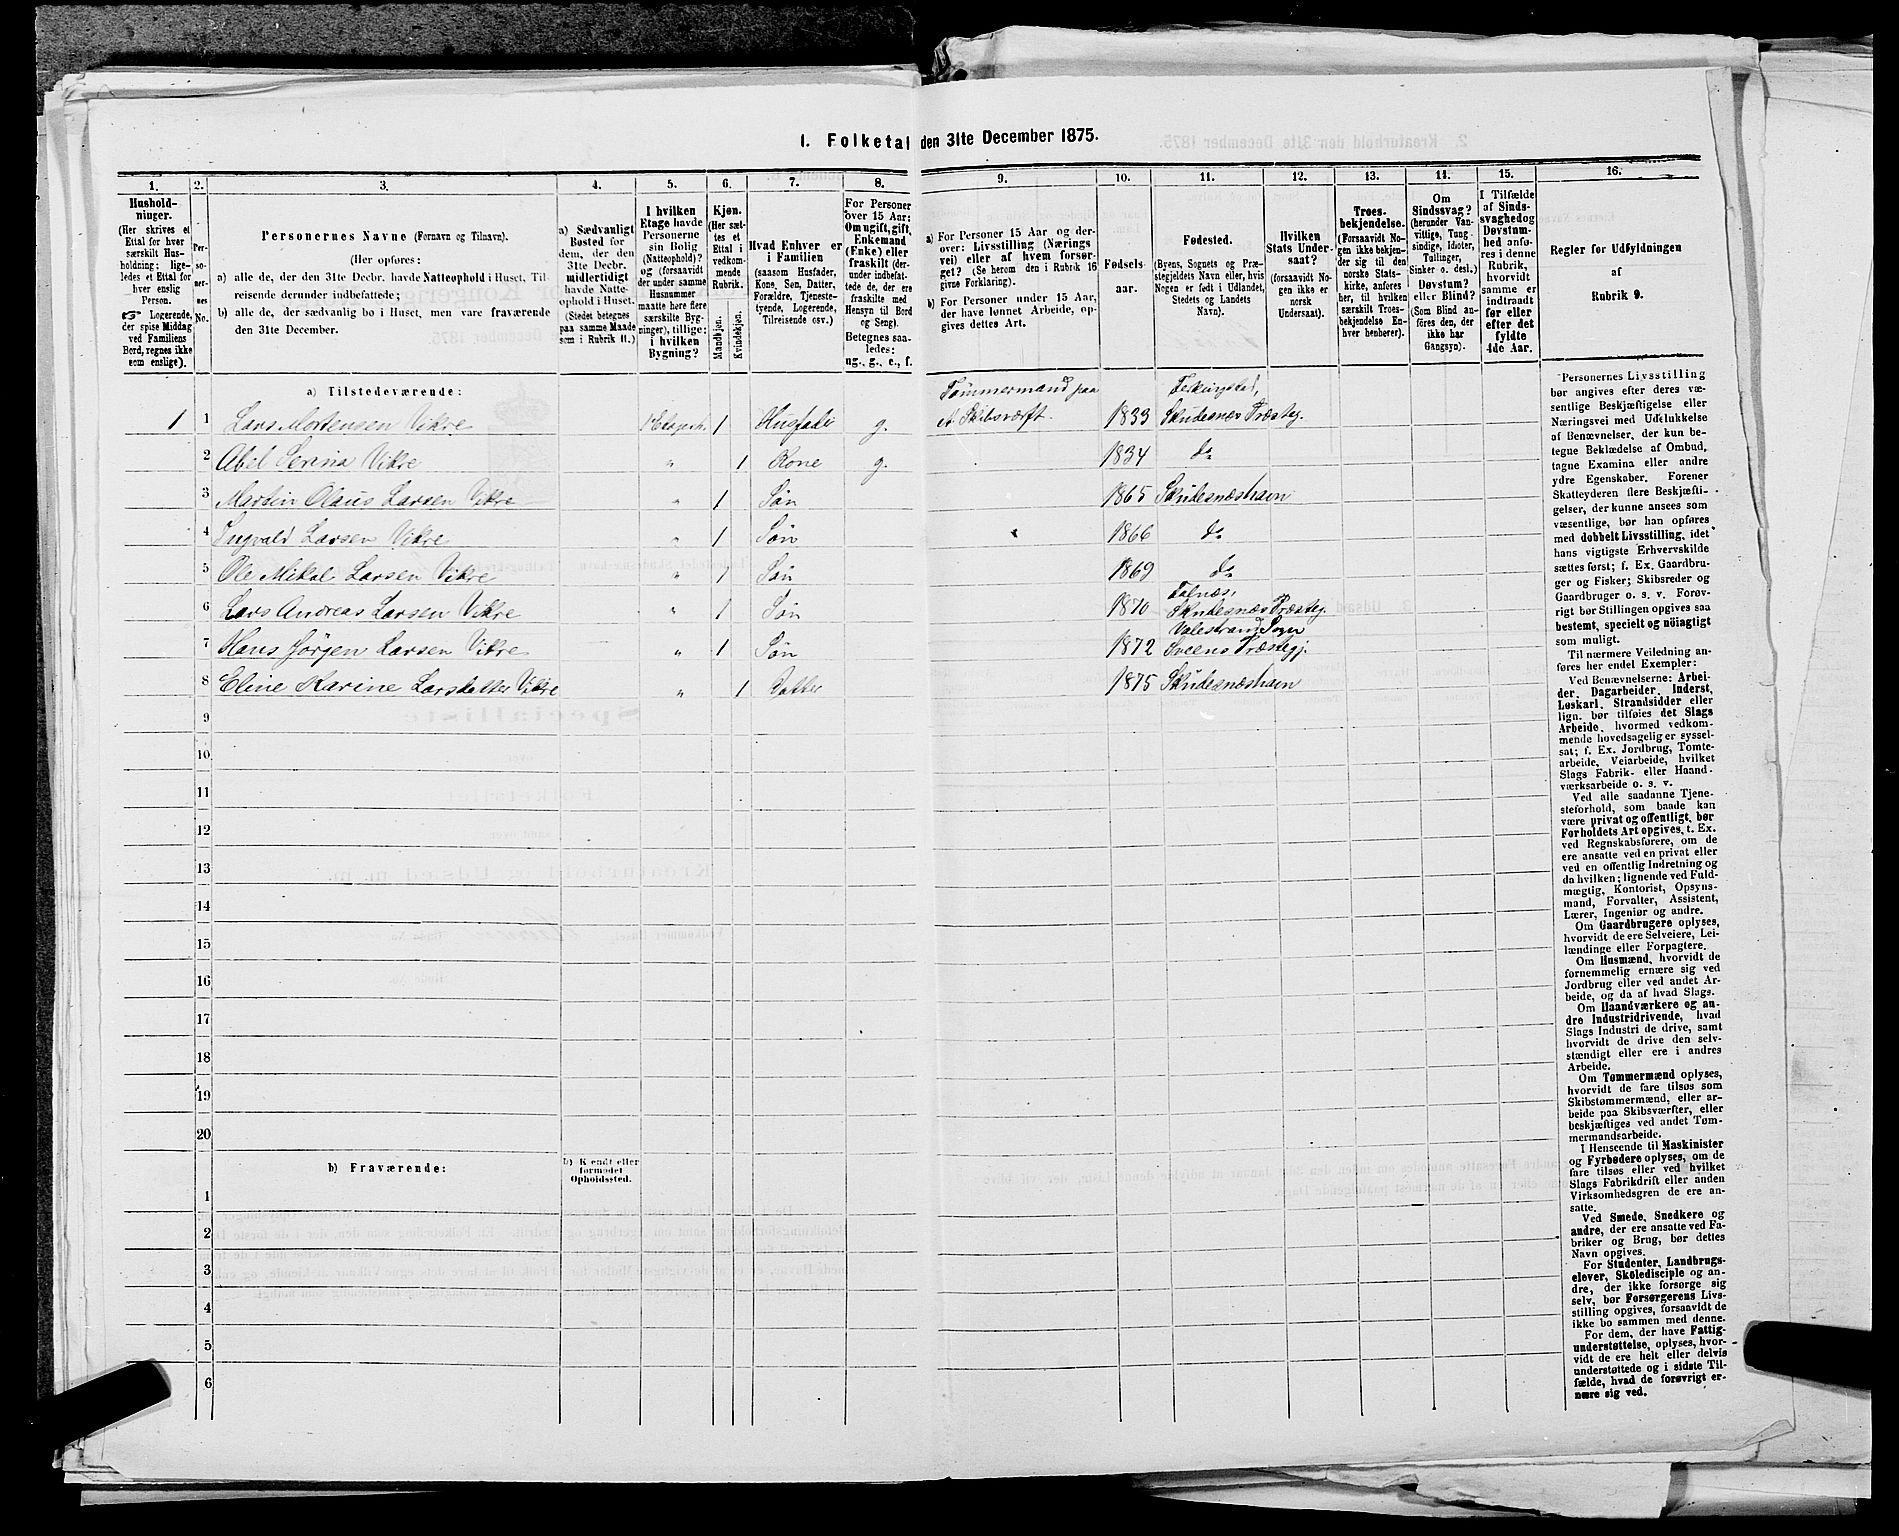 1. Folketal den 31te December 1875.
1.
2.
3.
4.
5.
6.
7.
8.
9.
10.
11.
12.
13.
14.
15.
16.
Hushold-
ninger.
(Her skrives et
Ettal for hver
særskilt Hus-
holdning; lige-
ledes et Ettal
for hver
enslig
Person.
Logerende,
der spise Middag
ved Familiens
Bord, regnes ikke
som enslige).
Per-
so-
ner-
nes
No.
Personernes Navne (Fornavn og Tilnavn).
(Her opføres:
a) alle de, der den 31te Decbr. havde Natteophold i Huset, Til-
reisende derunder indbefattede;
b) alle de, der sædvanlig bo i Huset, men vare fraværende
den 31te December.
a) Sædvanligt
Bosted for
dem, der den
31te Decbr.
midlertidigt
havde Natte-
ophold i Huset.
(Stedet betegnes
paa samme Maade
som i Rubrik 11.)
I hvilken
Etage havde
Personerne
sin Bolig
(Natteophold)?
og (forsaavidt
der under samme
Husnummer
maatte høre flere
særskilte Byg-
ninger), tillige:
i hvilken
Bygning?
Kjøn.
(Her sæt-
tes et
Ettal i
vedkom-
mende
Rubrik.
Mandkjøn.
Kvindekjøn.
Hvad Enhver er
i Familien
(saasom Husfader,
Kone, Søn, Datter,
Forældre, Tjeneste-
tyende, Logerende,
Tilreisende osv.)
For Personer
over 15 Aar:
Om ugift, gift,
Enkemand
(Enke) eller
fraskilt (der-
under indbefat-
tede de, der ere
fraskilte med
Hensyn til Bord
og Seng).
Betegnes saa-
ledes:
ug., g., e., f.
a) For Personer 15 Aar og der-
over: Livsstilling (Nærings
vei) eller af hvem forsør-
get? (Se herom den i Rubrik 16
givne Forklaring).
b) For Personer under 15 Aar,
der have lønnet Arbeide, op-
gives dettes Art.
Fødsels-
aar.
Fødested.
(Byens, Sognets og Præ-
stegjeldets Navn eller, hvis
Nogen er født i Udlandet,
Stedets og Landets
Navn).
Hvilken
Stats Under-
saat?
(forsaavidt No-
gen ikke er
norsk
Undersaat).
Troes-
bekjendelse.
(Forsaavidt No-
gen ikke bekjen-
der sig til den
norske Stats-
kirke, anføres
her, til hvilken
særskilt Troes-
bekjendelse En-
hver henhører).
Om
Sindssvag?
(herunder Van-
vittige, Tung-
sindige, Idioter,
Tullinger,
Sinker o. desl.)
Døvstum?
eller Blind?
(Som Blind an-
føres den, der
ikke har
Gangsyn).
I Tilfælde
af Sinds-
svaghed og
Døvstum-
hed anfø-
res i denne
Rubrik,
hvorvidt
samme er
indtraadt
før eller
efter det
fyldte
4de Aar.
Regler for Udfyldningen
af
Rubrik 9.
a) Tilstedeværende:
1 1 Lars Mortensen Vikre 1 Husfader g. Tømmermand paa et Skibsværft. 1833 Skudesnæs Præsteg.
2 Abel Serina Vikre " 1 Kone g. 1834 do
3 Martin Olaus Larsen Vikre " 1 Søn 1865 Skudesnæshavn
4 Ingvald Larsen Vikre " 1 Søn 1866 do
5 Ole Mikal Larsen Vikre " 1 Søn 1869 do
6 Lars Andreas Larsen Vikre " 1 Søn 1870 Falnæs, Skudesnæs Præsteg.
7 Hans Jörgen Larsen Vikre " 1 Søn 1872 Valestrand Sogn Sveens Præstegj.
8 Eline Karine Larsdatter Vikre " 1 Datter 1875 Skudesnæshavn
9
10
11
12
13
14
15
16
17
18
19
20
b) Fraværende:
b) Kjendt eller
formodet
Opholdssted.
1
2
3
4
5
6
Personernes Livsstilling
bør angives efter deres væ-
sentlige Beskjæftigelse eller
Næringsvei med Udelukkelse
af Benævnelser, der kun be-
tegne Beklædelse af Ombud,
tagne Examina eller andre
ydre Egenskaber. Forener
Skatteyderen flere Beskjæfti-
gelser, der kunne ansees som
væsentlige, bør han opføres
med dobbelt Livsstilling, idet
hans vigtigste Erhvervskilde
sættes først; f. Ex. Gaardbru-
ger og Fisker; Skibsreder og
Gaardbruger o. s. v. Forøv-
rigt bør Stillingen opgives saa
bestemt, specielt og nöiagtigt
som muligt.
Til nærmere Veiledning an-
føres her endel Exempler:
Ved Benævnelserne: Arbei-
der, Dagarbeider, Inderst,
Løskarl, Strandsidder eller
lign. bør tilføies det Slags
Arbeide, hvormed vedkom-
mende hovedsagelig er syssel-
sat; f. Ex. Jordbrug, Tomte-
arbeide, Veiarbeide, hvilket
Slags Fabrik- eller Haand-
værksarbeide o. s. v.
Ved alle saadanne Tjene-
steforhold, som baade kan
være privat og offentligt, bør
Forholdets Art opgives, t. Ex.
ved Regnskabsførere, om de
ere ansatte ved en privat eller
ved en offentlig Indretning og
da hvilken; lignende ved Fuld-
mægtig, Kontorist, Opsyns-
mand, Forvalter, Assistent,
Lærer, Ingeniør og andre.
Om Gaardbrugere oplyses,
hvorvidt de ere Selveiere, Lei-
lændinge eller Forpagtere.
Om Husmænd, hvorvidt de
fornemmelig ernære sig ved
Jordbrug eller ved andet Ar-
beide, og da af hvad Slags.
Om Haandværkere og an-
dre Industridrivende, hvad
Slags Industri de drive, samt
hvorvidt de drive den selv-
stændigt eller ere i andres
Arbeide.
Om Tømmermænd oplyses,
hvorvidt de fare tilsøs som
Skibstømmermænd, eller ar-
beide paa Skibsværfter, eller
beskjæftiges ved andet Tøm-
mermandsarbeide.
I Henseende til Maskinister
og Fyrbødere oplyses, om de
fare tilsøs eller ved hvilket
Slags Fabrikdrift eller anden
Virksomhedsgren de ere an-
satte.
Ved Smede, Snedkere og
andre, der ere ansatte ved Fa-
briker og Brug, bør dettes
Navn opgives.
For Studenter, Landbrugs-
elever, Skoledisciple og an-
dre, der ikke forsørge sig
selv, bør Forsørgerens Livs-
stilling opgives, forsaavidt de
ikke bo sammen med denne.
For dem, der have Fattig-
understøttelse, oplyses, hvor-
vidt de ere helt eller delvis
understøttede og i sidste Til-
fælde, hvad de forøvrigt er-
nære sig ved.